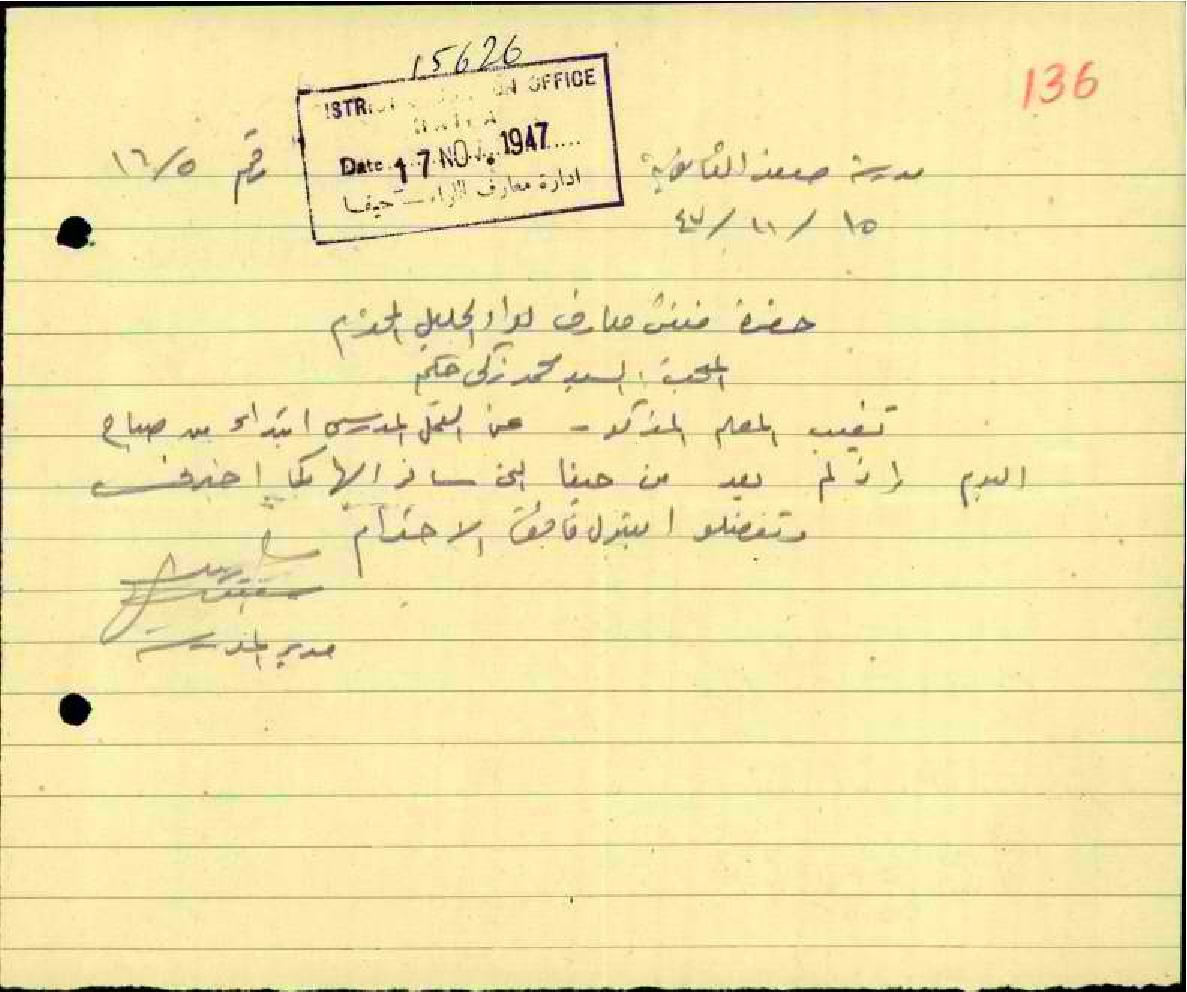 15626
136
DISTRICT EDUCATION OFFICE
HAIFA
Date 17 NOV. 1947
ادارة معارف اللواء - حيفا
مدرسة صفد الثانوية
رقم ١٦/٥
١٥ / ١١ / ٤٧
حضرة مفتش معارف لواء الجليل المحترم
المبحث : السيد محمد زكي حكيم
تغيب المعلم المذكور عن العمل المدرسي ابتداء من صباح
اليوم إذ لم يعد من حيفا التي سافر اليها كما اخبرني
وتفضلوا بقبول فائق الاحترام
مدير المدرسة